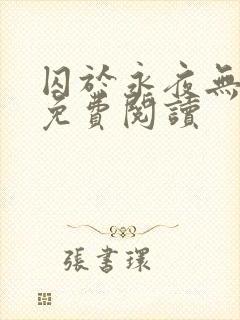 囚於永夜無
免費閱讀
張書環